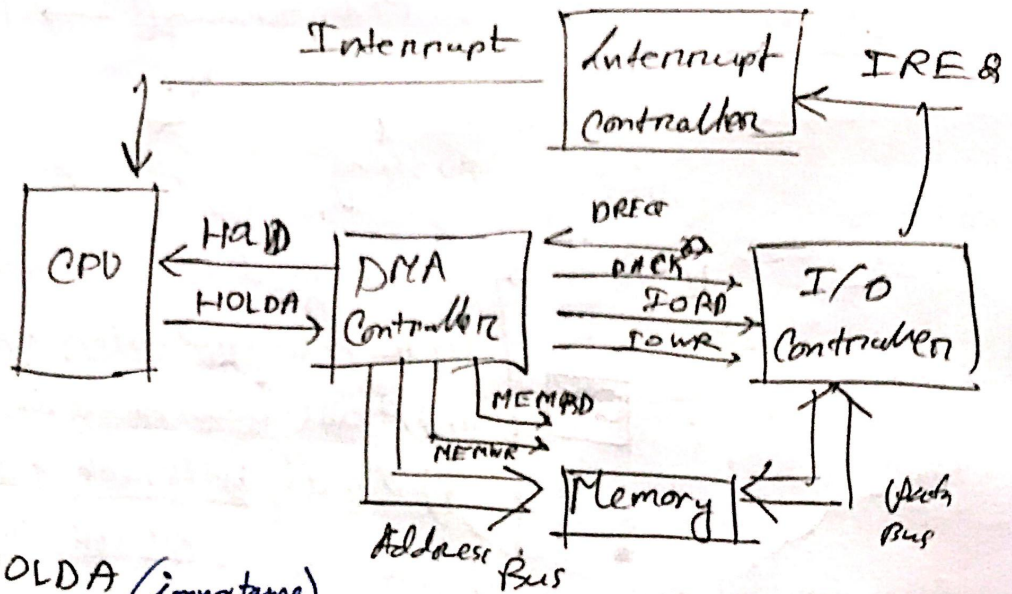 Interrupt
Interrupt
Controller
IREQ
CPU
HOLD
HOLDA
DMA
Controller
DREQ
DACK
IORD
IOWR
I/O
Controller
MEMRD
MEMWR
Memory
Address Bus
Data
Bus
OLDA (importance)